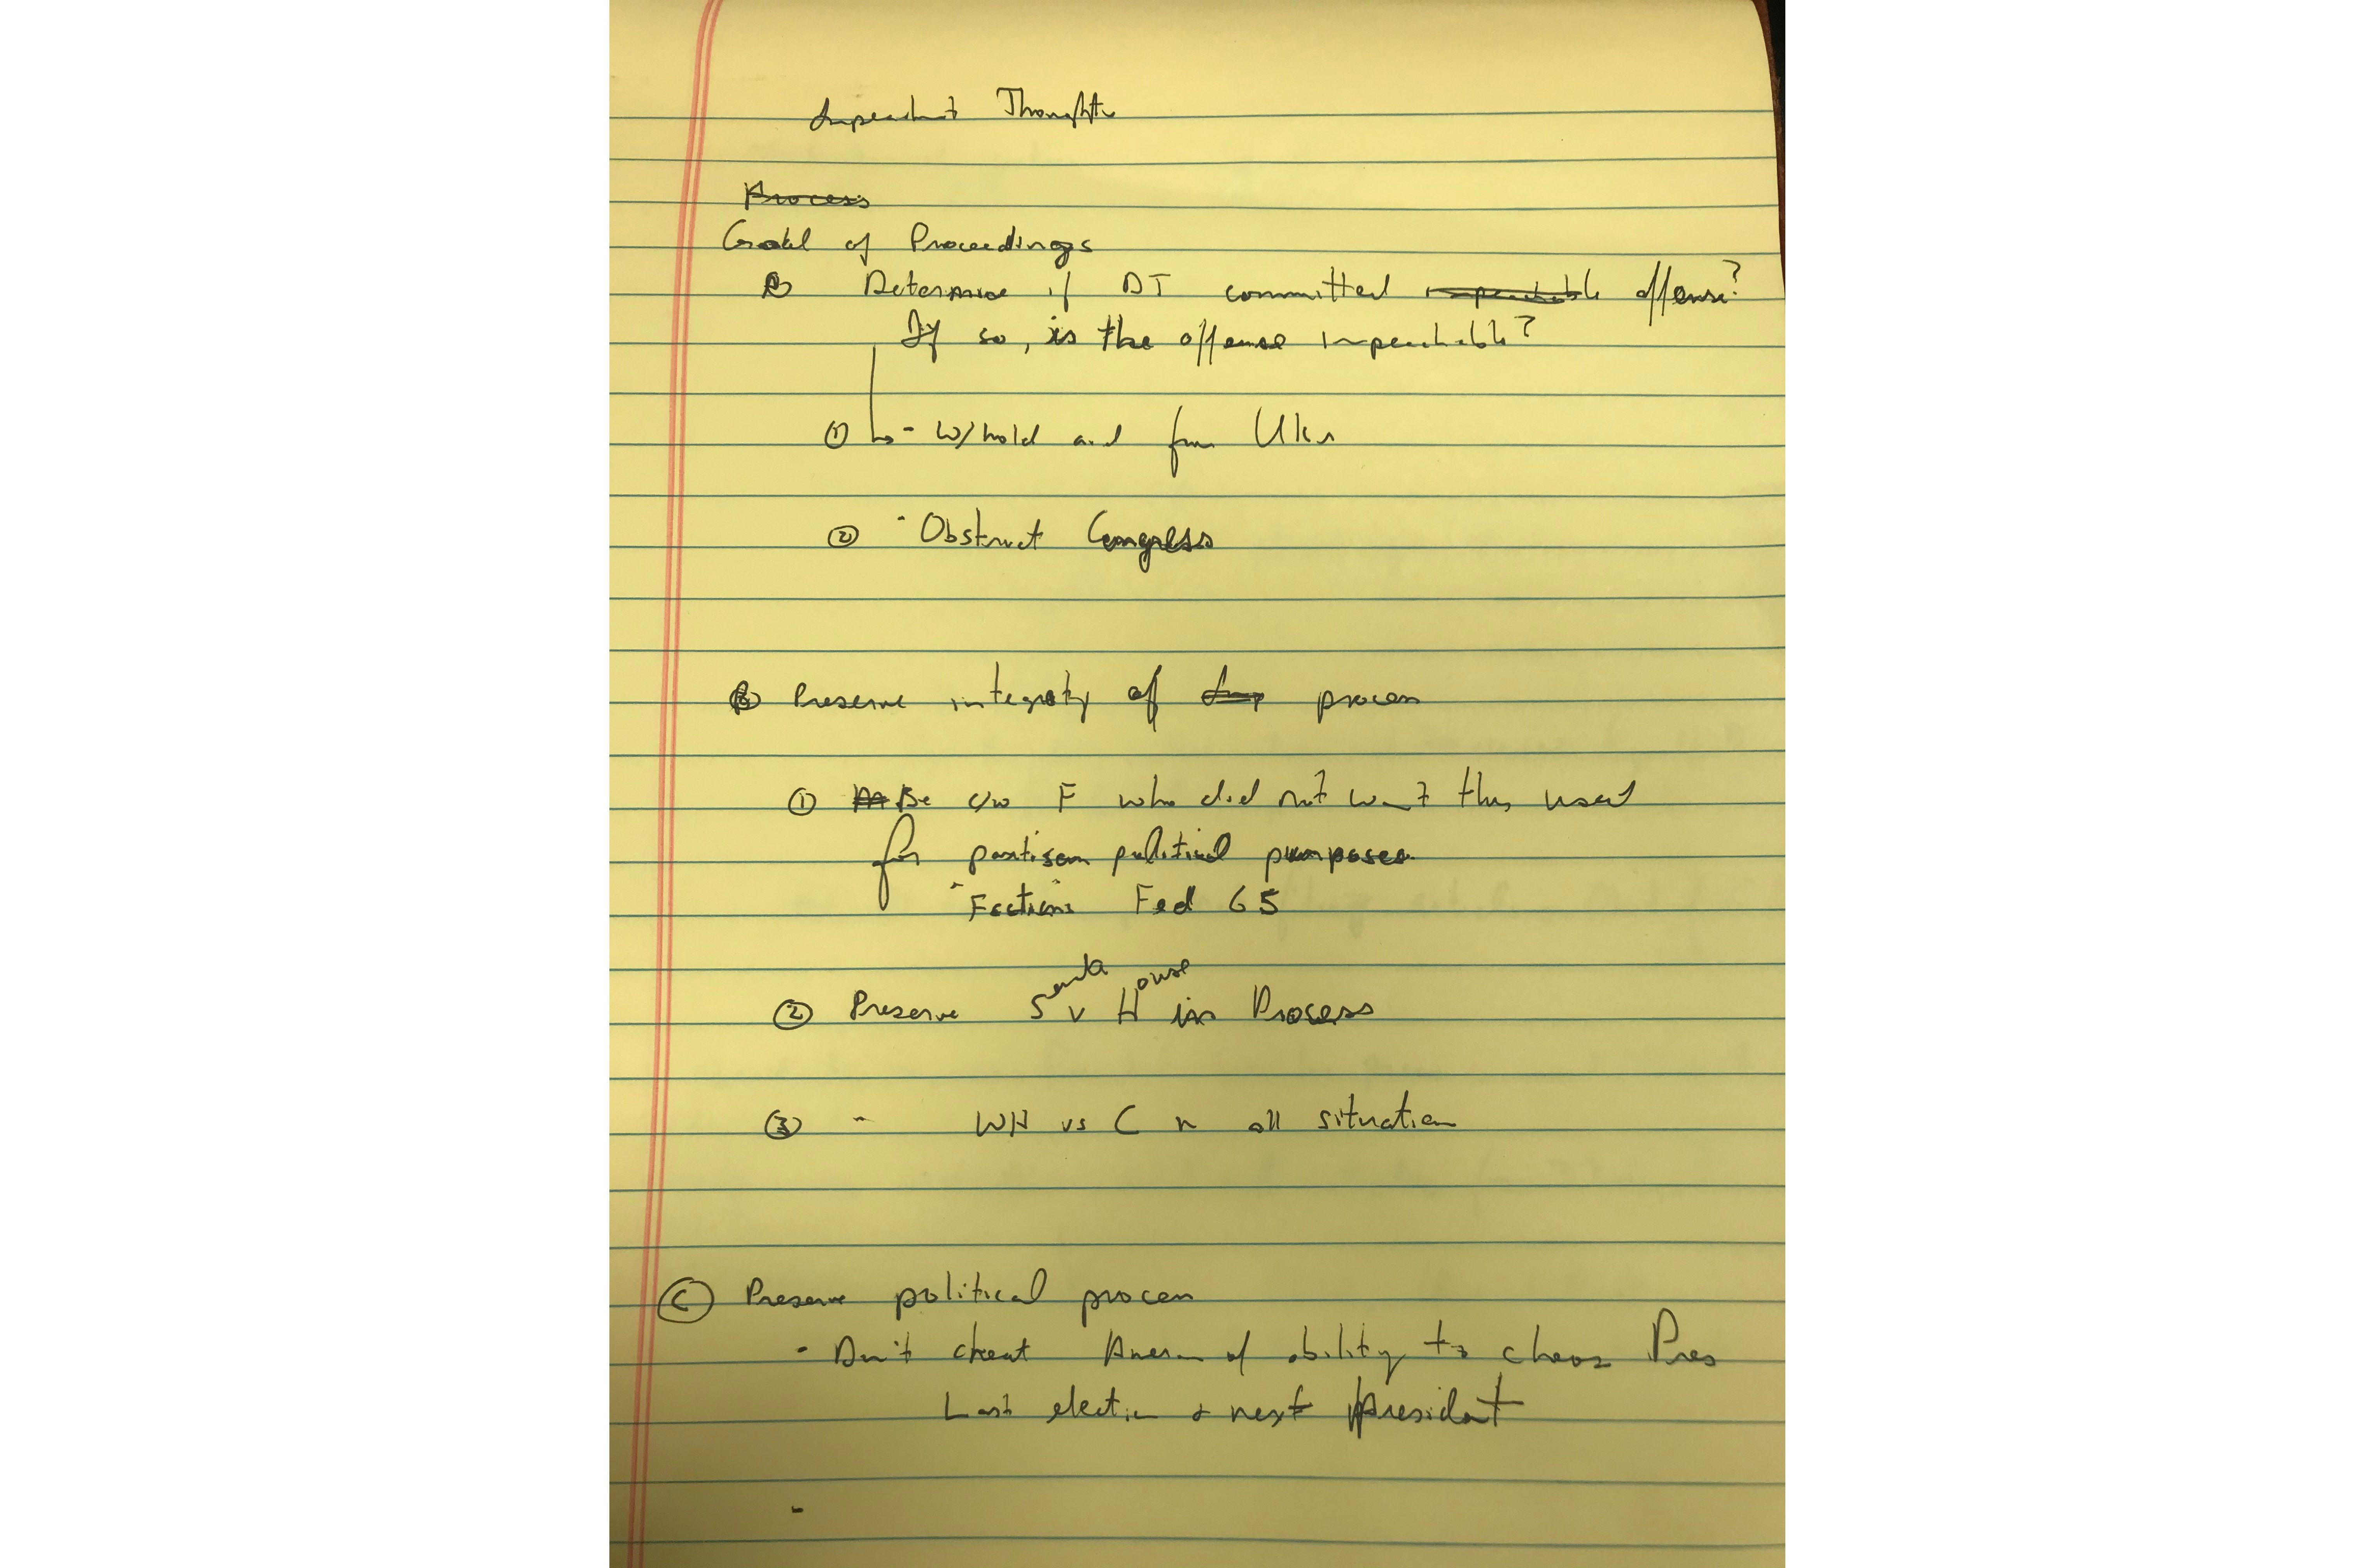 Impeachment Thoughts
Process
Goal of Proceedings
A Determine if DT committed impeachable offense?
If so, is the offense impeachable?
① - W/hold aid from Ukr
② - Obstruct Congress
B Preserve integrity of Imp process
① Be c/w F who did not want this used
for partisan political purposes
"Factions" Fed 65
② Preserve Senate v House in Process
③ " WH vs C in all situation
Ⓒ Preserve political process
- Don't cheat Amern of ability to choose Pres
Last election & next President
-